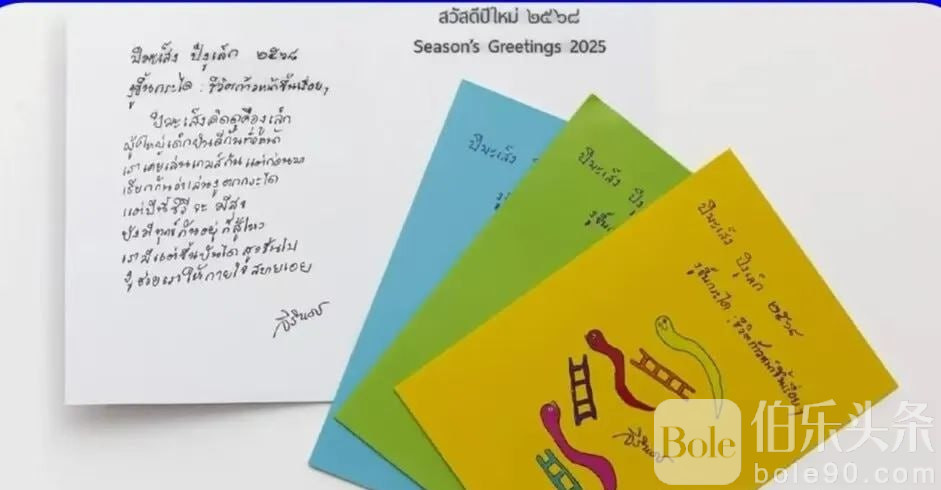 สวัสดีปีใหม่ ๒๕๖๘
Season's Greetings 2025
ปีมะเส็ง ปีงูเล็ก ๒๕๖๘
งูขึ้นกระได : ชีวิตก้าวหน้าขึ้นเรื่อยๆ
ปีมะเส็งคิดดูคืองูเล็ก
ผู้ใหญ่เด็กยินดีกันที่
เราเคยเล่นเกมส์กันแต่ก่อนมา
เรียกกันว่าเล่นงูตกกระได
แต่ปีนี้ชีวีจะมีสุข
ยังมีทุกข์กันอยู่ก็สู้ไหว
เรามีแต่ขึ้นบันไดสูงขึ้นไป
งูช่วยเราให้กายใจสบายเอย
สิรินธร
ปีมะเส็ง ปี
ปีมะเส็ง ปีงู
งูขึ้น
ปีมะเส็ง ปีงูเล็ก ๒๕๖๘
งูขึ้นกระได : ชีวิตก้าวหน้าขึ้นเรื่อยๆ
สิรินธร
Bole
伯乐头条
bole90.com